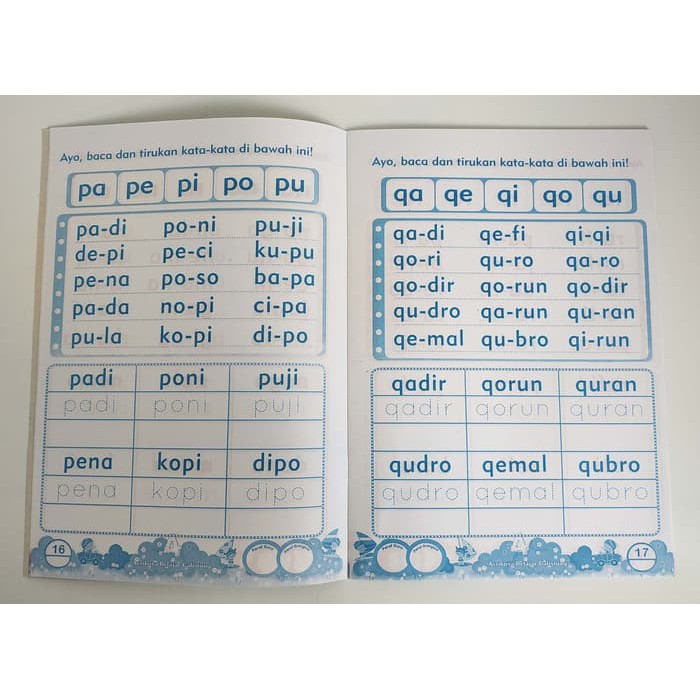 Ayo, baca dan tirukan kata-kata di bawah ini!
pa pe pi po pu
pa-di po-ni pu-ji
de-pi pe-ci ku-pu
pe-na po-so ba-pa
pa-da no-pi ci-pa
pu-la ko-pi di-po
padi poni puji
padi poni puji
pena kopi dipo
pena kopi dipo
16
Ayo, baca dan tirukan kata-kata di bawah ini!
qa qe qi qo qu
qa-di qe-fi qi-qi
qo-ri qu-ro qa-ro
qo-dir qo-run qo-dir
qu-dro qa-run qu-ran
qe-mal qu-bro qi-run
qadir qorun quran
qadir qorun quran
qudro qemal qubro
qudro qemal qubro
17